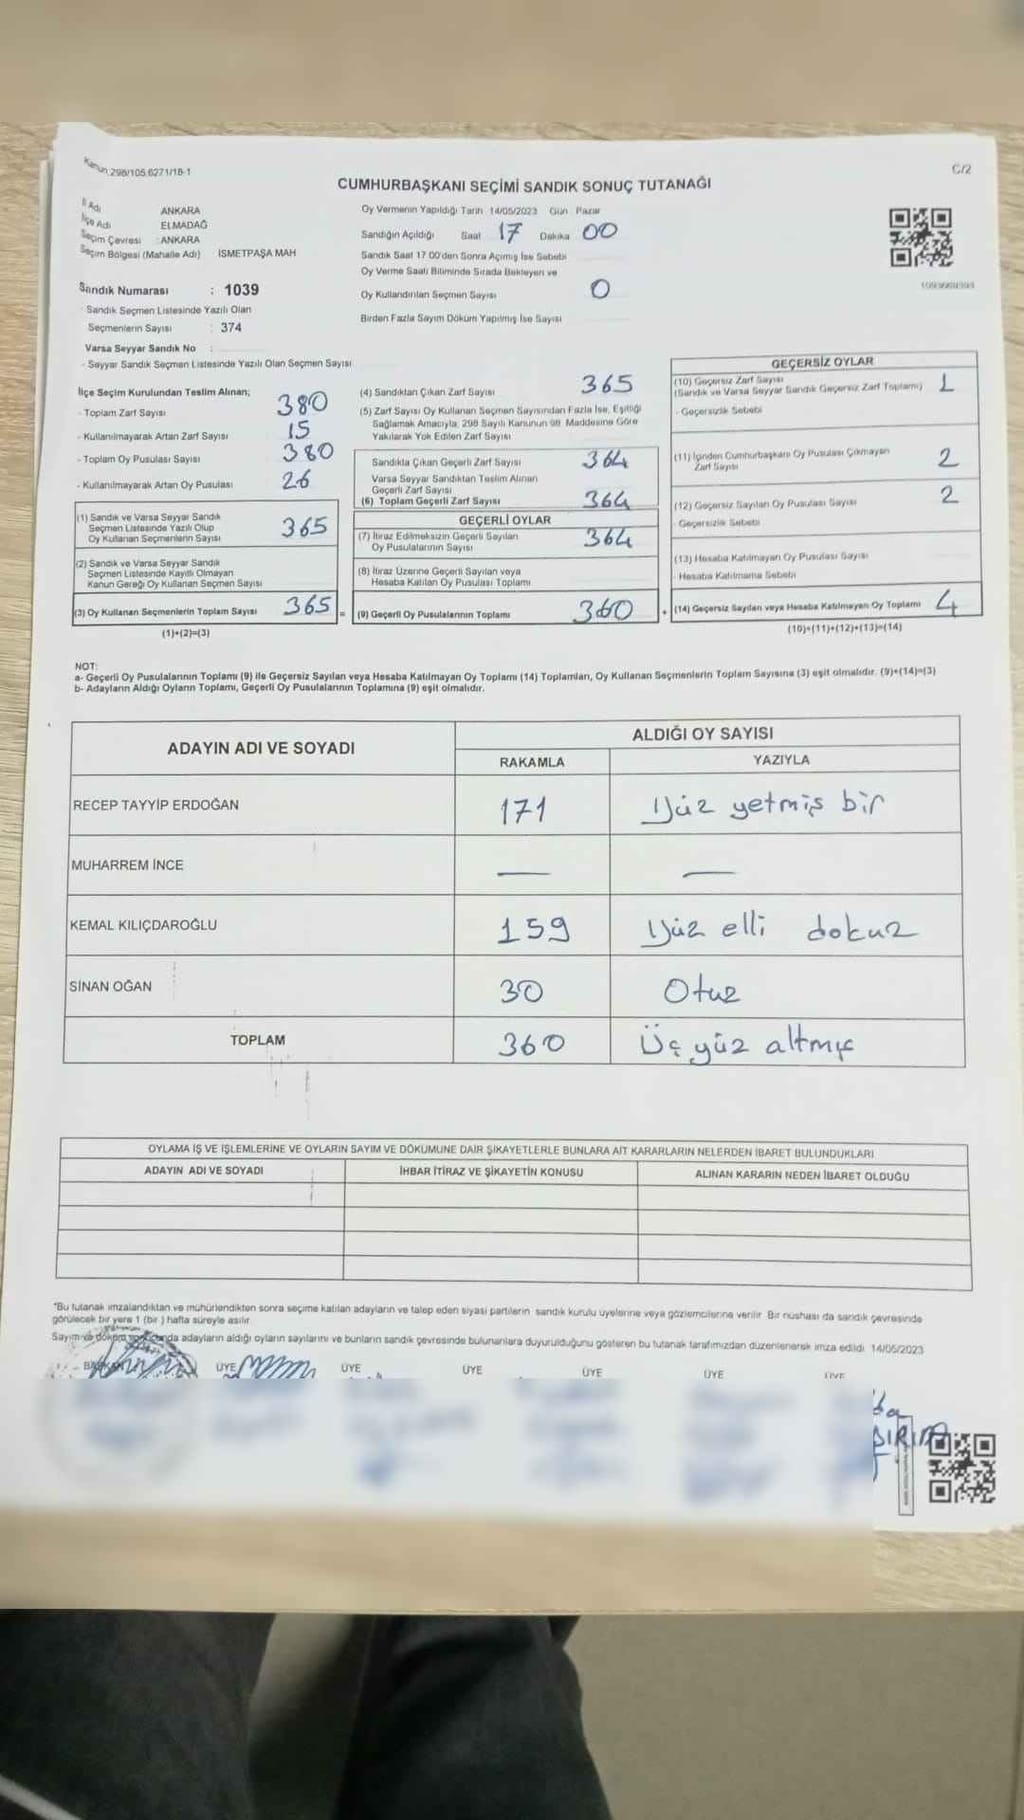 Kanun 298/105,6271/18-1
C/2
CUMHURBAŞKANI SEÇİMİ SANDIK SONUÇ TUTANAĞI
İl Adı ANKARA
İlçe Adı ELMADAĞ
Seçim Çevresi : ANKARA
Seçim Bölgesi (Mahalle Adı) İSMETPAŞA MAH
Sandık Numarası : 1039
Sandık Seçmen Listesinde Yazılı Olan
Seçmenlerin Sayısı : 374
Varsa Seyyar Sandık No :
- Seyyar Sandık Seçmen Listesinde Yazılı Olan Seçmen Sayısı
Oy Vermenin Yapıldığı Tarih 14/05/2023 Gün Pazar
Sandığın Açıldığı Saat 17 Dakika 00
Sandık Saat 17 00'den Sonra Açılmış İse Sebebi
Oy Verme Saati Bitiminde Sırada Bekleyen ve
Oy Kullandırılan Seçmen Sayısı 0
Birden Fazla Sayım Döküm Yapılmış İse Sayısı
İlçe Seçim Kurulundan Teslim Alınan;
- Toplam Zarf Sayısı 380
- Kullanılmayarak Artan Zarf Sayısı 15
- Toplam Oy Pusulası Sayısı 380
- Kullanılmayarak Artan Oy Pusulası 26
(1) Sandık ve Varsa Seyyar Sandık
Seçmen Listesinde Yazılı Olup
Oy Kullanan Seçmenlerin Sayısı 365
(2) Sandık ve Varsa Seyyar Sandık
Seçmen Listesinde Kayıtlı Olmayan
Kanun Gereği Oy Kullanan Seçmen Sayısı
(3) Oy Kullanan Seçmenlerin Toplam Sayısı 365 =
(1)+(2)=(3)
(4) Sandıktan Çıkan Zarf Sayısı 365
(5) Zarf Sayısı Oy Kullanan Seçmen Sayısından Fazla İse, Eşitliği
Sağlamak Amacıyla, 298 Sayılı Kanunun 98 Maddesine Göre
Yakılarak Yok Edilen Zarf Sayısı
Sandıkta Çıkan Geçerli Zarf Sayısı 364
Varsa Seyyar Sandıktan Teslim Alınan
Geçerli Zarf Sayısı
(6) Toplam Geçerli Zarf Sayısı 364
GEÇERLİ OYLAR
(7) İtiraz Edilmeksizin Geçerli Sayılan
Oy Pusulalarının Sayısı 364
(8) İtiraz Üzerine Geçerli Sayılan veya
Hesaba Katılan Oy Pusulası Toplamı
(9) Geçerli Oy Pusulalarının Toplamı 360 +
GEÇERSİZ OYLAR
(10) Geçersiz Zarf Sayısı
(Sandık ve Varsa Seyyar Sandık Geçersiz Zarf Toplamı) 1
- Geçersizlik Sebebi
(11) İçinden Cumhurbaşkanı Oy Pusulası Çıkmayan
Zarf Sayısı 2
(12) Geçersiz Sayılan Oy Pusulası Sayısı 2
- Geçersizlik Sebebi
(13) Hesaba Katılmayan Oy Pusulası Sayısı
- Hesaba Katılmama Sebebi
(14) Geçersiz Sayılan veya Hesaba Katılmayan Oy Toplamı 4
(10)+(11)+(12)+(13)=(14)
NOT:
a- Geçerli Oy Pusulalarının Toplamı (9) ile Geçersiz Sayılan veya Hesaba Katılmayan Oy Toplamı (14) Toplamları, Oy Kullanan Seçmenlerin Toplam Sayısına (3) eşit olmalıdır. (9)+(14)=(3)
b- Adayların Aldığı Oyların Toplamı, Geçerli Oy Pusulalarının Toplamına (9) eşit olmalıdır.
ADAYIN ADI VE SOYADI ALDIĞI OY SAYISI
RAKAMLA YAZIYLA
RECEP TAYYİP ERDOĞAN 171 Yüz yetmiş bir
MUHARREM İNCE — —
KEMAL KILIÇDAROĞLU 159 Yüz elli dokuz
SİNAN OĞAN 30 Otuz
TOPLAM 360 Üç yüz altmış
OYLAMA İŞ VE İŞLEMLERİNE VE OYLARIN SAYIM VE DÖKÜMÜNE DAİR ŞİKAYETLERLE BUNLARA AİT KARARLARIN NELERDEN İBARET BULUNDUKLARI
ADAYIN ADI VE SOYADI İHBAR İTİRAZ VE ŞİKAYETİN KONUSU ALINAN KARARIN NEDEN İBARET OLDUĞU
"Bu tutanak imzalandıktan ve mühürlendikten sonra seçime katılan adayların ve talep eden siyasi partilerin sandık kurulu üyelerine veya gözlemcilerine verilir. Bir nüshası da sandık çevresinde
görülecek bir yere 1 (bir) hafta süreyle asılır.
Sayım ve döküm sonucunda adayların aldığı oyların sayılarını ve bunların sandık çevresinde bulunanlara duyurulduğunu gösteren bu tutanak tarafımızdan düzenlenerek imza edildi 14/05/2023
BAŞKAN ÜYE ÜYE ÜYE ÜYE ÜYE ÜYE